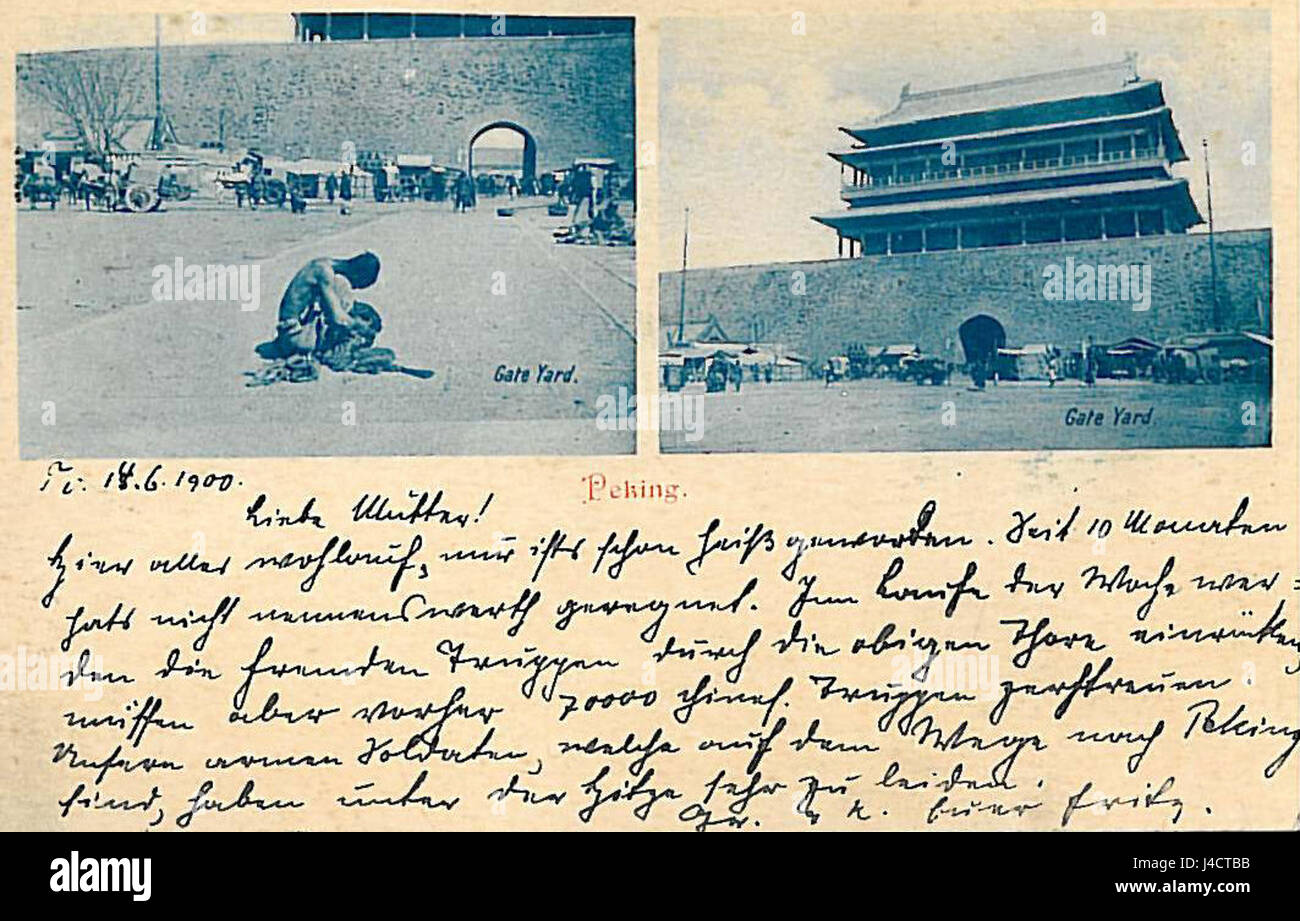 Gate Yard.
Gate Yard
Peking.
14.6.1900.
Liebe Mutter!
Hier alles wohlauf, nur ists schon heiß geworden. Seit 10 Monaten
hats nicht nennenswerth geregnet. Im Laufe der Woche wer=
den die fremden Truppen durch die obigen Thore einrücken,
müssen aber vorher 70000 chines. Truppen zerstreuen.
Unsere armen Soldaten, welche auf dem Wege nach Peking
sind, haben unter der Hitze sehr zu leiden.
Gr. u. K. Euer Fritz.
alamy
Image ID: J4CTBB
www.alamy.com